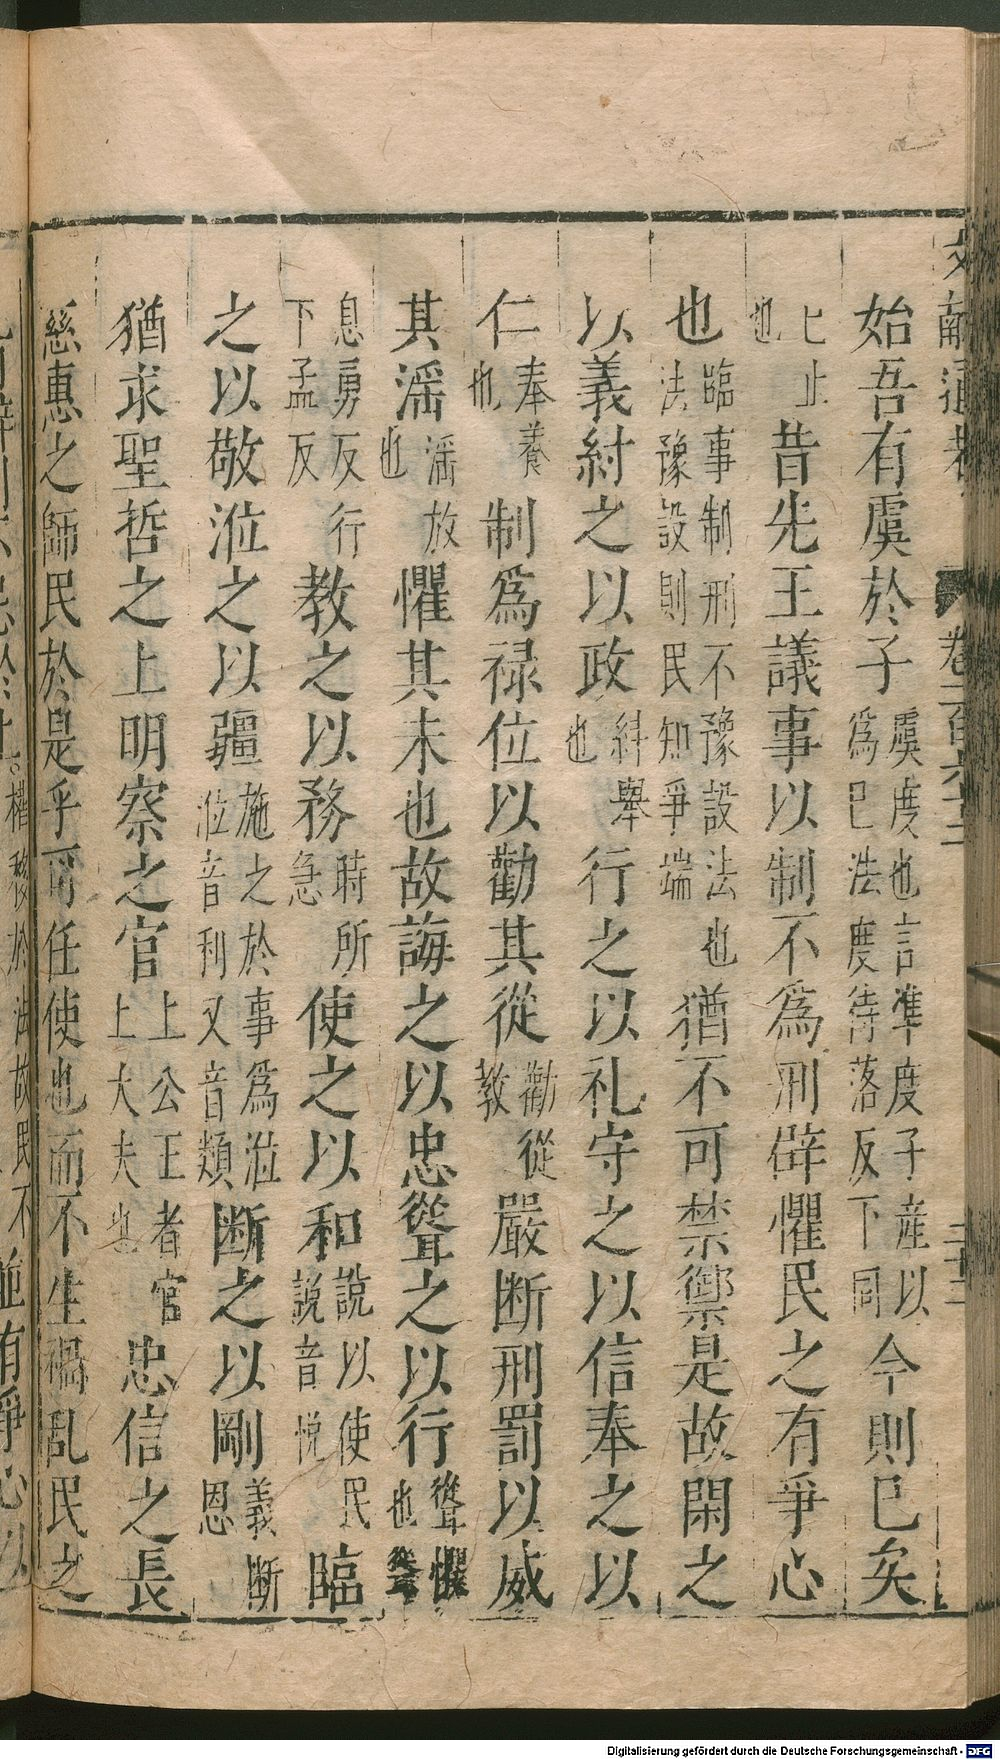 文獻通考 卷一百六十二 二十二
始吾有虞於子虞度也言準度子產以爲巳法度待落反下同今則巳矣
巳止也昔先王議事以制不爲刑辟懼民之有爭心
也臨事制刑不豫設法也法豫設則民知爭端猶不可禁禦是故閑之
以義紏之以政糾舉也行之以礼守之以信奉之以
仁奉養也制爲禄位以勸其從勸從教嚴断刑罰以威
其滛滛放也懼其未也故誨之以忠聳之以行聳懼也聳
息勇反行下孟反教之以務時所急使之以和說以使民說音悦臨
之以敬涖之以疆施之於事爲涖涖音利又音類断之以剛義断恩
猶求聖哲之上明察之官上公王者官上大夫也忠信之長
慈惠之師民於是乎可任使也而不生禍乱民之
權移於法故民不並有爭心以
Digitalisierung gefördert durch die Deutsche Forschungsgemeinschaft - DFG